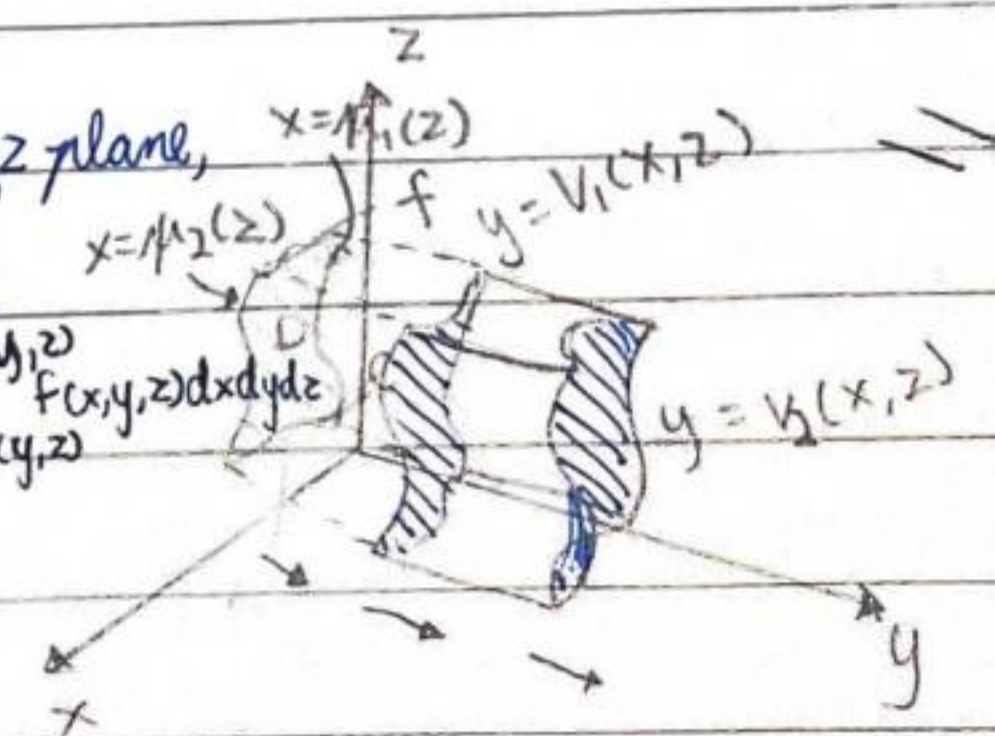 z
x=μ₁(z)
z plane,
f
y = V₁(x,z)
x=μ₂(z)
D
y,z)
f(x,y,z)dxdydz
(y,z)
y = V₂(x,z)
y
x